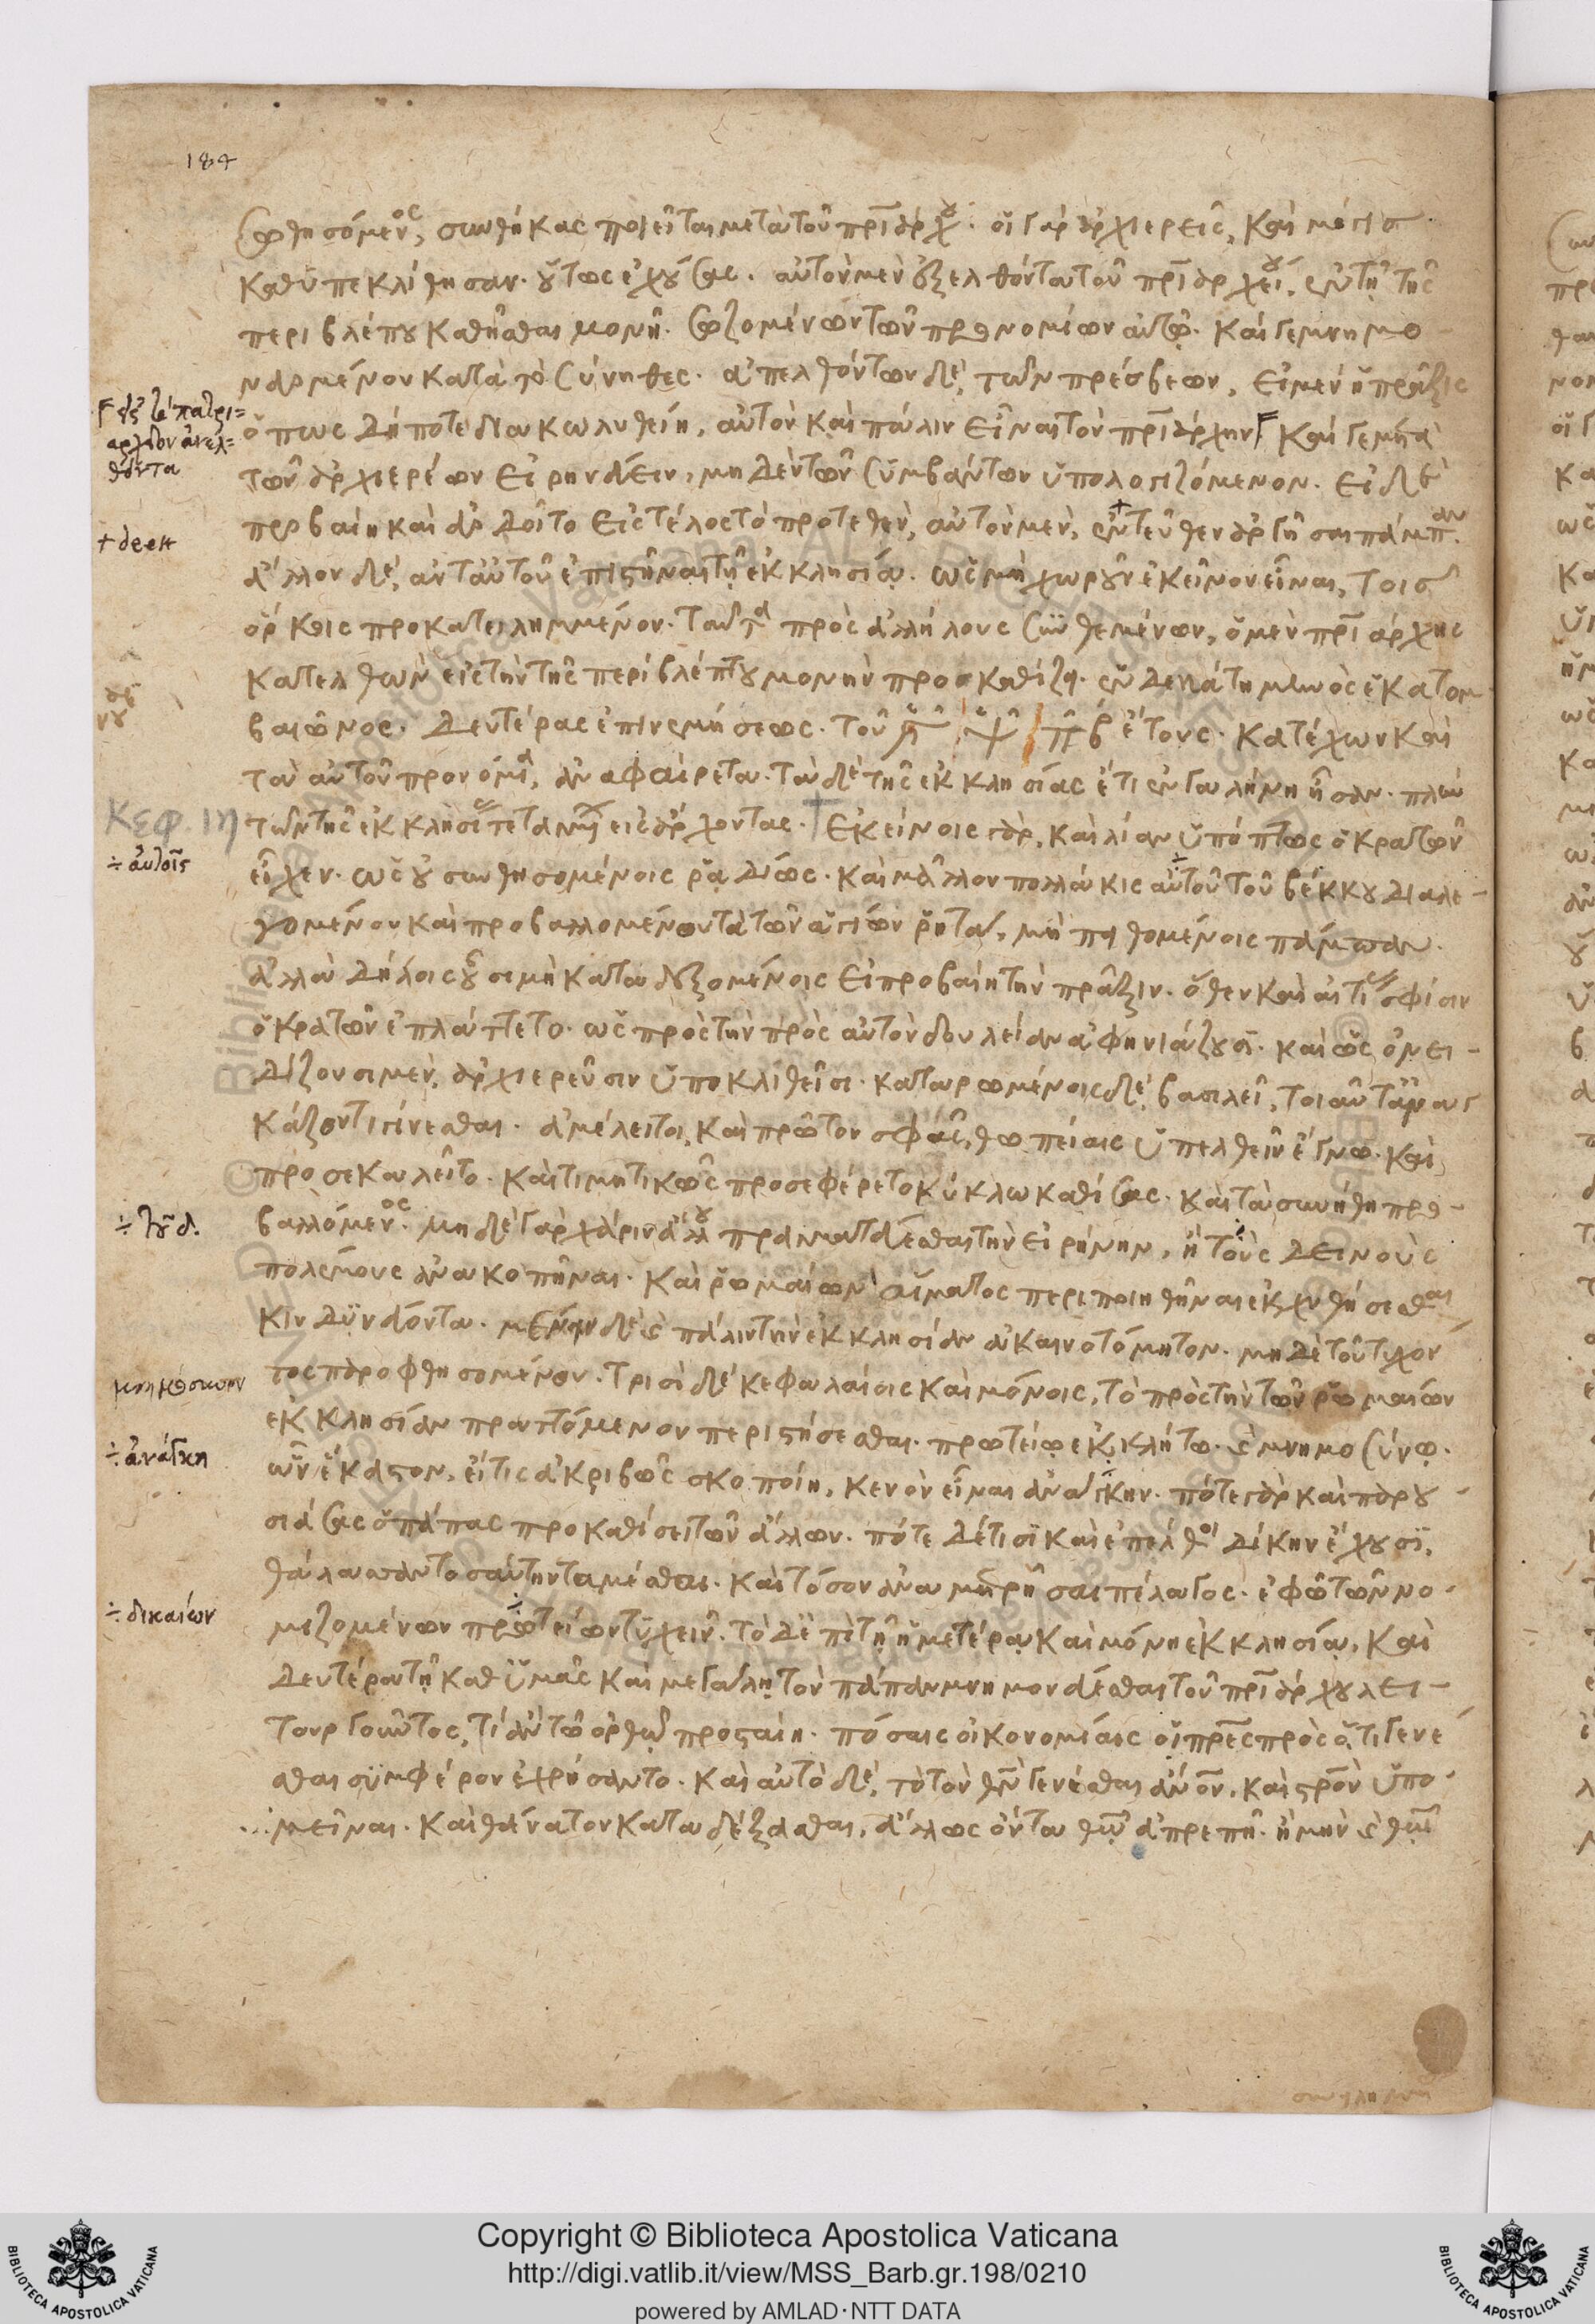 184
σωθησόμενος, συνθήκας ποιεῖται μετὰ τοῦ πρϊάρχου. οἱ γὰρ ἀρχιερεῖς, καὶ μόγις
καθυπεκλίθησαν. οὕτως ἐχούσας. αὐτὸν μὲν ἐξελθόντα τοῦ πρϊαρχείου, ἐν τῇ τῆς
περιβλέπτου καθῆσθαι μονῇ. σωζομένων τῶν προνομίων αὐτῷ. καί γε μνημο-
νευομένου κατὰ τὸ σύνηθες. ἀπελθόντων δὲ, τῶν πρέσβεων, εἰ μὲν ἡ πρᾶξις
ὅπως δήποτε διακωλυθείη, αὐτὸν καὶ πάλιν εἶναι τὸν πρϊάρχην καί γε μετὰ
τῶν ἀρχιερέων εἰρηνεύειν, μηδὲν τῶν συμβάντων ὑπολογιζόμενον. εἰ δὲ
προβαίη καὶ ἀνδοῖτο εἰς τέλος τὸ προτεθὲν, αὐτὸν μὲν, ἐντεῦθεν ἀργῆσαι πάμπαν.
ἄλλον δὲ, ἀντ' αὐτοῦ ἐπιστῆναι τῇ ἐκκλησίᾳ. ὡς μὴ χωροῦν ἐκεῖνον εἶναι, τοῖς
ὅρκοις προκατειλημμένον. ταῦτα πρὸς ἀλλήλους συνθεμένων, ὁ μὲν πρϊάρχης
κατελθὼν εἰς τὴν τῆς περιβλέπτου μονὴν προσκαθίζει. ἐν δεκάτῃ μηνὸς ἑκατομ
βαιῶνος. δευτέρας ἐπινεμήσεως. τοῦ ϛ ψ π β ἔτους. κατέχων καὶ
τὰ αὐτοῦ προνόμια, ἀναφαίρετα. τὰ δὲ τῆς ἐκκλησίας ἔτι ἐν γαλήνῃ ἦσαν. πλὴν
ΚΕΦ. ιη
τῶν τῆς ἐκκλησίας τεταγμένων εἰς ἄρχοντας. ἐκείνοις γὰρ, καὶ λίαν ὑπόπτως ὁ κρατῶν
εἶχεν. ὡς οὐ συνθησομένοις ῥᾳδίως. καὶ μᾶλλον πολλάκις αὐτοῦ τοῦ βέκκου διαλε-
γομένου καὶ προβαλλομένου τὰ τῶν ἁγίων ῥητά, μὴ πειθομένοις πάμπαν.
ἀλλὰ δήλοις οὖσι μὴ καταδεξομένοις εἰ προβαίη τὴν πρᾶξιν. ὅθεν καὶ αἰτίας σφίσιν
ὁ κρατῶν ἐπλάττετο. ὡς πρὸς τὴν πρὸς αὐτὸν δουλείαν ἀφηνιάζουσι. καὶ ὡς ὀνει-
δίζουσι μὲν, ἀρχιερεῦσιν ὑποκλιθεῖσι. καταρωμένοις δὲ, βασιλεῖ, τοιαῦτ' ἀναγ
κάζοντι γίνεσθαι. ἀμέλει τοι, καὶ πρῶτον σφᾶς, θωπείαις ὑπελθεῖν ἔγνω. καὶ
προσεκαλεῖτο. καὶ τιμητικῶς προσεφέρετο κύκλῳ καθίσας. καὶ τὰ συνήθη προ-
βαλλόμενος. μηδὲ γὰρ χάριν ἄλλου πραγματεύεσθαι τὴν εἰρήνην, ἢ τοὺς δεινοὺς
πολέμους ἀνακοπῆναι. καὶ ῥωμαίων αἵματος περιποιηθῆναι ἐκχυθήσεσθαι
κινδυνεύοντα. μένειν δὲ καὶ πάλιν τὴν ἐκκλησίαν ἀκαινοτόμητον. μηδὲ τοῦ τυχόν
τος παροφθησομένου. τρισὶ δὲ κεφαλαίοις καὶ μόνοις, τὸ πρὸς τὴν τῶν ῥωμαίων
ἐκκλησίαν πραττόμενον περιστήσεσθαι. πρωτείῳ ἐκκλήτῳ. καὶ μνημοσύνῳ.
ὧν ἕκαστον, εἴ τις ἀκριβῶς σκοποίη, κενὸν εἶναι ἀνάγκην. πότε γὰρ καὶ παρου-
σιάσας ὁ πάπας προκαθίσει τῶν ἄλλων. πότε δέ τισι καὶ ἐπελθοι δίκην ἔχουσι,
θάλασσαν τοσαύτην τεμέσθαι. καὶ τόσον ἀναμετρῆσαι πέλαγος. ἐφ' ᾧ τῶν νο-
μιζομένων πρωτείων τυχεῖν. τὸ δ' ἐπὶ τῇ ἡμετέρᾳ καὶ μόνῃ ἐκκλησίᾳ, καὶ
δευτέρᾳ τῇ καθ' ἡμᾶς καὶ μεγάλῃ τὸν πάπαν μνημονεύεσθαι τοῦ πρϊάρχου λει-
τουργοῦντος, τί ἂν τῷ ὀρθῷ προσταίη. πόσαις οἰκονομίαις οἱ πρες πρὸς ὅ,τι γενέ
σθαι συμφέρον ἐχρήσαντο. καὶ αὐτὸ δὲ, τὸ τὸν θν γενέσθαι ἄνον, καὶ στρον ὑπο-
μεῖναι. καὶ θάνατον καταδέξασθαι, ἄλλως ὄντα θῷ ἀπρεπῆ. ἡμῖν καὶ θω
ἐξ τε πατρι-
αρχείου ἀνελ-
θόντα
+ deest
÷ αὐτοῖς
÷ ἀνάγκη
÷ δικαίων
Copyright © Biblioteca Apostolica Vaticana
http://digi.vatlib.it/view/MSS_Barb.gr.198/0210
powered by AMLAD·NTT DATA
BIBLIOTECA APOSTOLICA VATICANA
BIBLIOTECA APOSTOLICA VATICANA